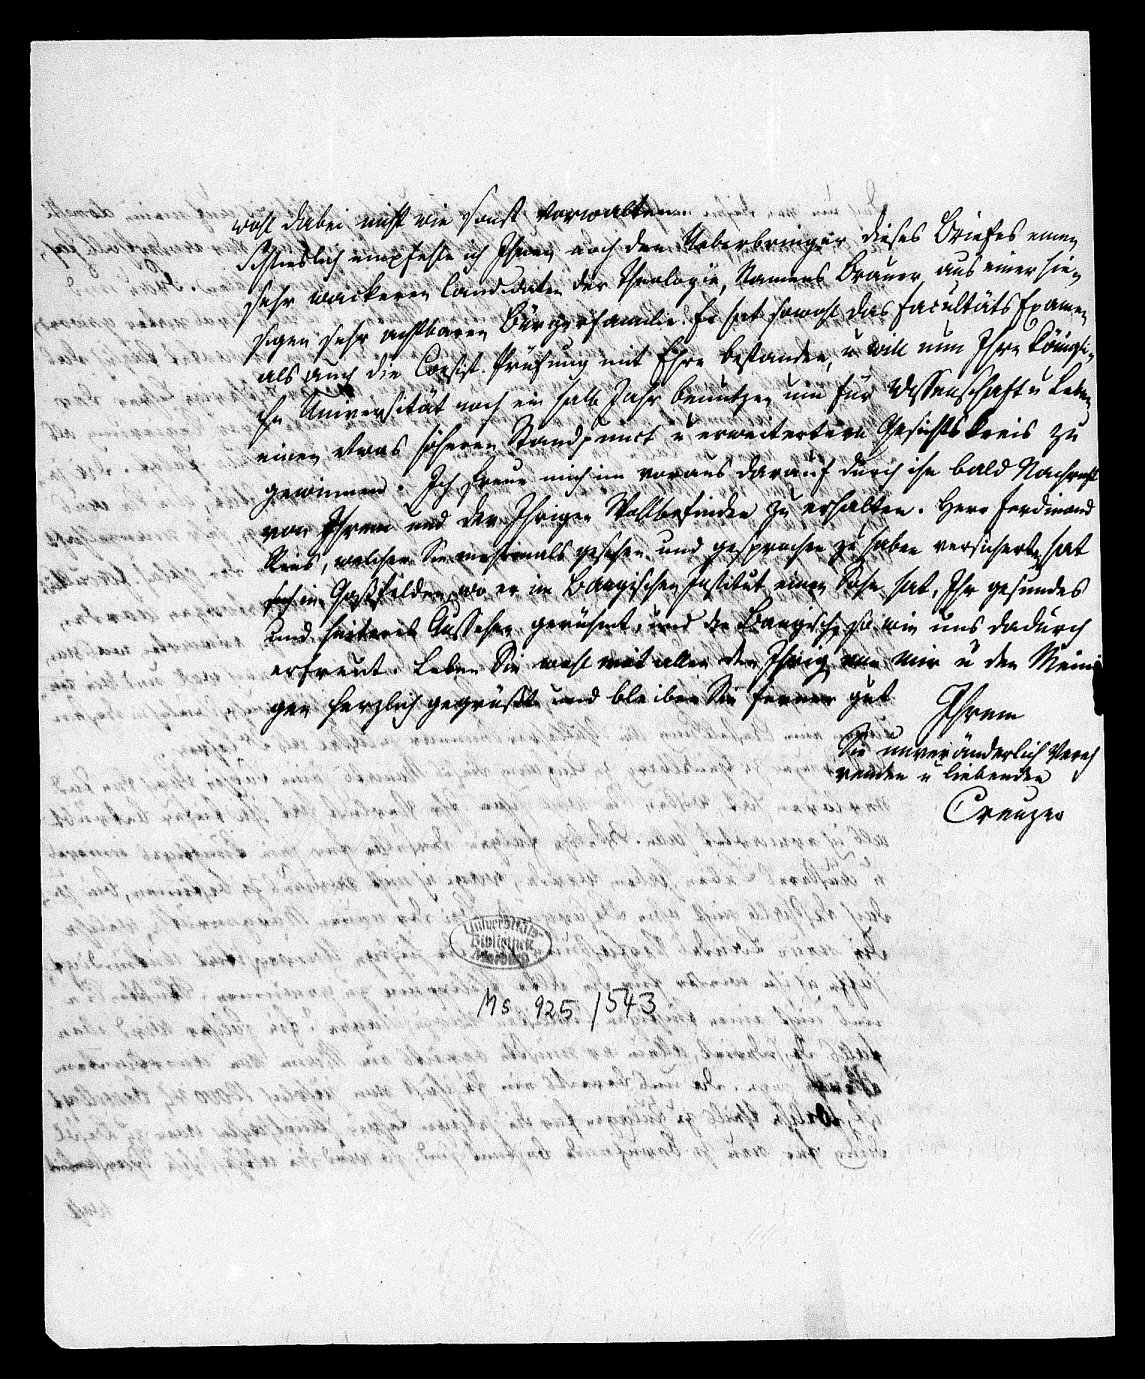 wohl dabei nicht wie sonst vorwalten.
Schlieslich empfehle ich Ihnen noch den Ueberbringer dieses Briefes einen
sehr wackeren Candidaten der Theologie, Namens Brauer, aus einer hie-
sigen sehr achtbaren Bürgerfamilie. Er hat sowohl das Facultäts Examen
als auch die Consist. Prüfung mit Ehre bestanden, u will nun Ihre Königli-
che Universität noch ein halb Jahr benutzen um für Wissenschaft u Leben
einen etwas höheren Standpunct u erweiterteren Gesichtskreis zu
gewinnen. Ich freue mich im voraus darauf durch ihn bald Nachricht
von Ihrem und der Ihrigen Wohlbefinden zu erhalten. Herr Ferdinand
welcher Sie mehrmals gesehen und gesprochen zu haben versicherte, hat
sich in wo er im Bangischen Institut einen Sohn hat, Ihr gesundes
und heiteres Aussehen gerühmt, und die Bangische so wie uns dadurch
erfreut. Leben Sie wohl mit allen den Ihrig von mir u den Meini
gen herzlich gegrüßt und bleiben Sie ferner gut
Ihrem
Sie unveränderlich Vereh
renden u liebenden
Creuzer
Universitäts-
Bibliothek
Marburg
Ms 925/543